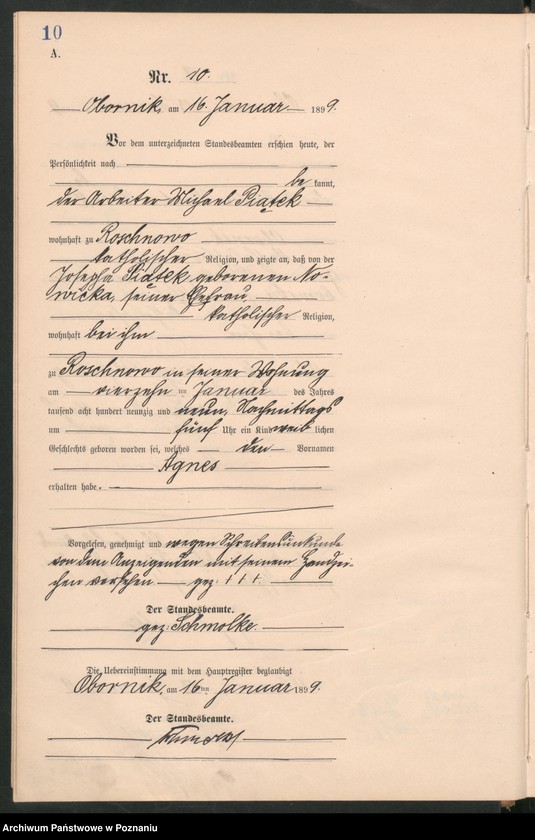 10
A.
Nr. 10.
Obornik, am 16. Januar 1899.
Vor dem unterzeichneten Standesbeamten erschien heute, der
Persönlichkeit nach
be kannt,
der Arbeiter Michael Piątek
wohnhaft zu Roschnowo
katholischer Religion, und zeigte an, daß von der
Josepha Piątek geborenen No-
wicka, seiner Ehefrau,
katholischer Religion,
wohnhaft bei ihm
zu Roschnowo in seiner Wohnung
am vierzehn ten Januar des Jahres
tausend acht hundert neunzig und neun, Nachmittags
um fünf Uhr ein Kind weib lichen
Geschlechts geboren worden sei, welches den Vornamen
Agnes
erhalten habe.
Vorgelesen, genehmigt und wegen Schreibensunkunde
von dem Anzeigenden mit seinem Handzei-
chen versehen gez: † † †.
Der Standesbeamte.
gez: Schmolke.
Die Uebereinstimmung mit dem Hauptregister beglaubigt
Obornik, am 16ten Januar 1899.
Der Standesbeamte.
Archiwum Państwowe w Poznaniu